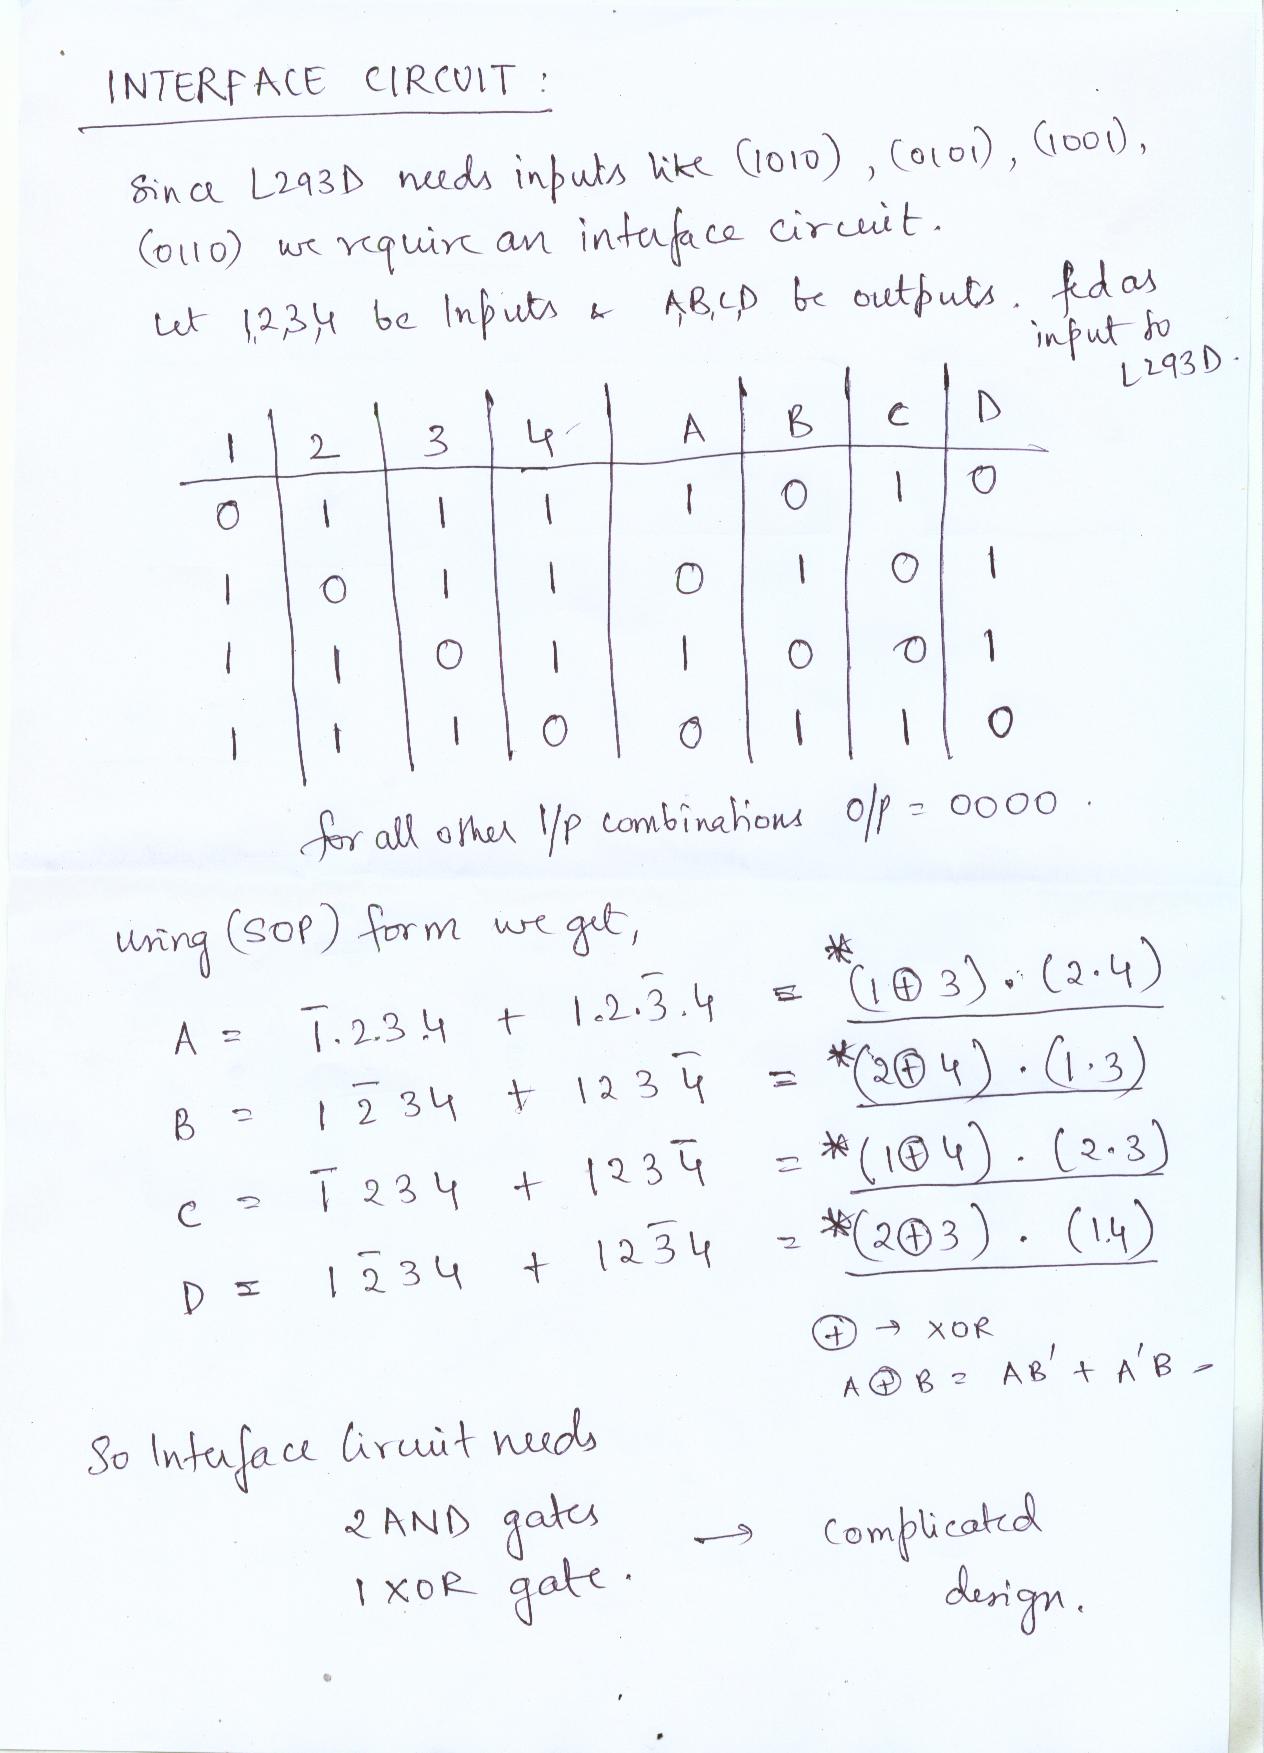 INTERFACE CIRCUIT :
Since L293D needs inputs like (1010), (0101), (1001),
(0110) we require an interface circuit.
Let 1,2,3,4 be Inputs & A,B,C,D be outputs. fed as
input to
L293D.
1 2 3 4 A B C D
0 1 1 1 1 0 1 0
1 0 1 1 0 1 0 1
1 1 0 1 1 0 0 1
1 1 1 0 0 1 1 0
for all other I/P combinations O/P = 0000.
Using (SOP) form we get,
A = 1̅.2.3.4 + 1.2.3̅.4 = *(1⊕3).(2.4)
B = 1 2̅ 3 4 + 1 2 3 4̅ = *(2⊕4).(1.3)
C = 1̅ 2 3 4 + 1 2 3 4̅ = *(1⊕4).(2.3)
D = 1 2̅ 3 4 + 1 2 3̅ 4 = *(2⊕3).(1.4)
⊕ → XOR
A⊕B = AB' + A'B -
So Interface Circuit needs
2 AND gates → complicated
1 XOR gate. design.